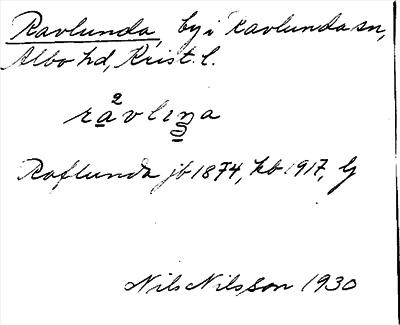 Ravlunda, by i Ravlunda sn,
Albo hd, Krist. l.
ra²vliṉa
Raflunda jb 1874, kb 1917, G
Nils Nilsson 1930